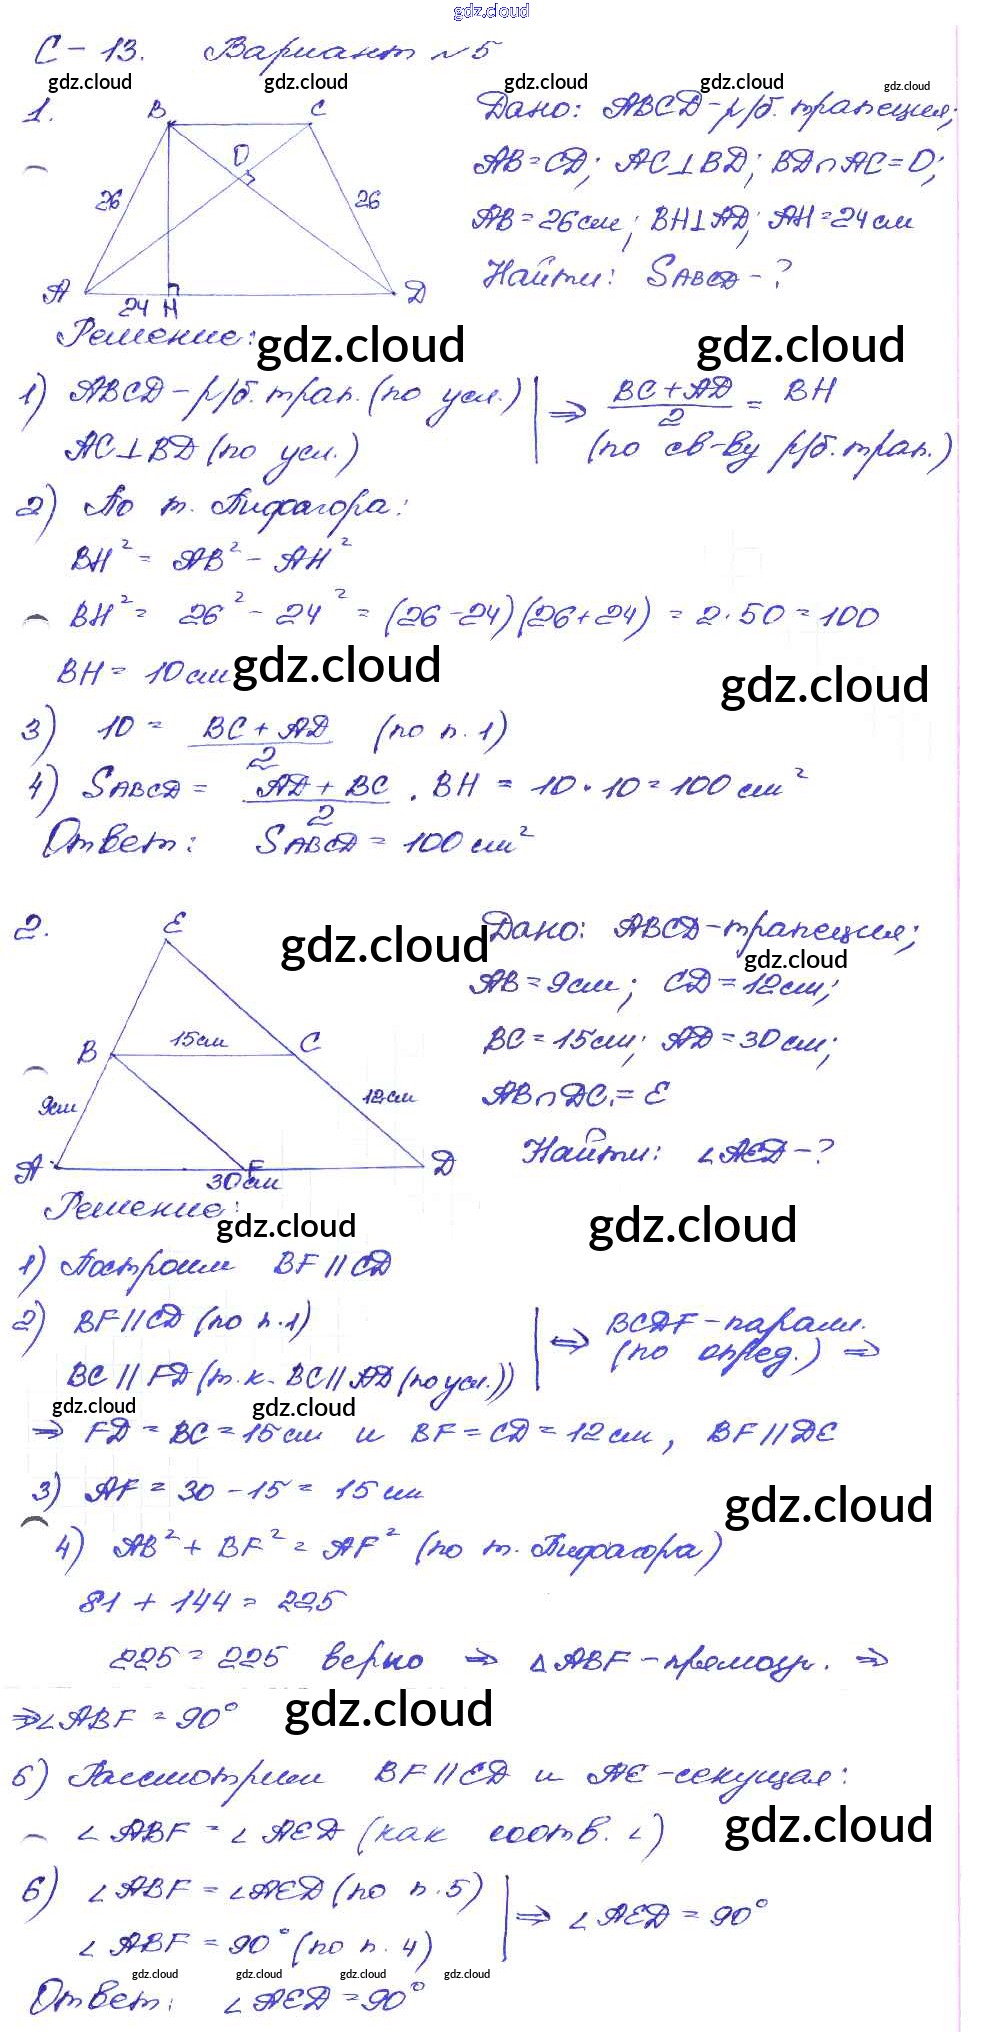 gdz.cloud
С-13. Вариант №5
gdz.cloud gdz.cloud gdz.cloud gdz.cloud gdz.cloud
1.
B C
O
26 26
A 24 H D
Дано: ABCD-р/б. трапеция;
AB=CD; AC⊥BD; BD∩AC=O;
AB=26см; BH⊥AD; AH=24см
Найти: SABCD-?
Решение:
gdz.cloud gdz.cloud
1) ABCD-р/б. трап. (по усл.) | ⇒ (BC+AD)/2 = BH
AC⊥BD (по усл.) (по св-ву р/б. трап.)
2) По т. Пифагора:
BH² = AB² - AH²
BH² = 26² - 24² = (26-24)(26+24) = 2·50 = 100
BH = 10см
gdz.cloud gdz.cloud
3) 10 = (BC+AD)/2 (по п. 1)
4) SABCD = (AD+BC)/2 · BH = 10·10=100 см²
Ответ: SABCD = 100 см²
2.
E
B 15см C
9см 12см
A F D
30см
gdz.cloud
Дано: ABCD-трапеция;
gdz.cloud
AB=9см; CD=12см;
BC=15см; AD=30см;
AB∩DC=E
Найти: ∠AED-?
Решение:
gdz.cloud gdz.cloud
1) Построим BF||CD
2) BF||CD (по п.1) | ⇒ BCDF-паралл.
BC||FD (т.к. BC||AD (по усл.)) (по опред.) ⇒
gdz.cloud gdz.cloud
⇒ FD=BC=15см и BF=CD=12см, BF||DE
3) AF=30-15=15см
gdz.cloud
4) AB²+BF²=AF² (по т. Пифагора)
81+144=225
225=225 верно ⇒ △ABF-прямоуг. ⇒
⇒∠ABF=90°
gdz.cloud
5) Рассмотрим BF||ED и AE-секущая:
∠ABF=∠AED (как соотв. ∠)
gdz.cloud
6) ∠ABF=∠AED (по п.5) | ⇒ ∠AED=90°
∠ABF=90° (по п. 4)
gdz.cloud gdz.cloud gdz.cloud gdz.cloud
Ответ: ∠AED=90°